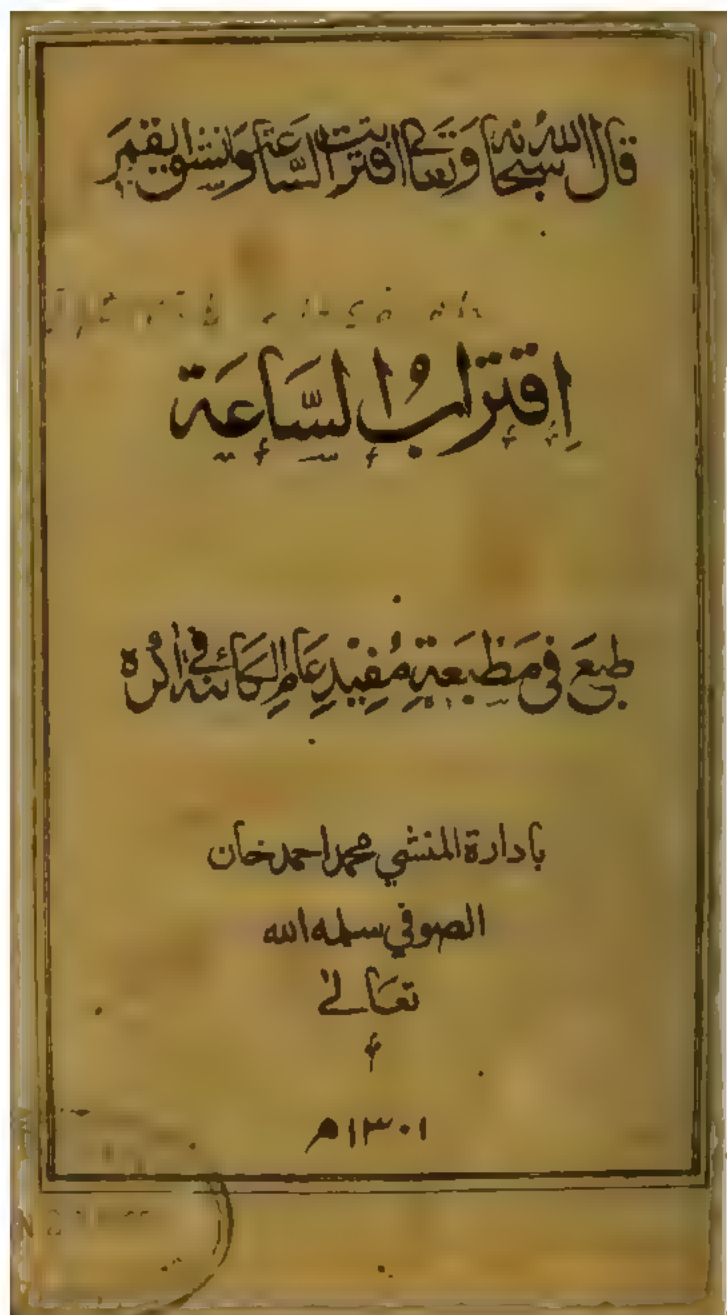 قال الله سبحانه وتعالى اقتربت الساعة وانشق القمر
اِقتِرابُ السَّاعَة
طبعَ فى مَطبعَةِ مُفِيْدِ عَامِ الكائنه فى اگره
بادارة المنشي محمد احمد خان
الصوفي سلمه الله
تعالىٰ
١٣٠١ھ